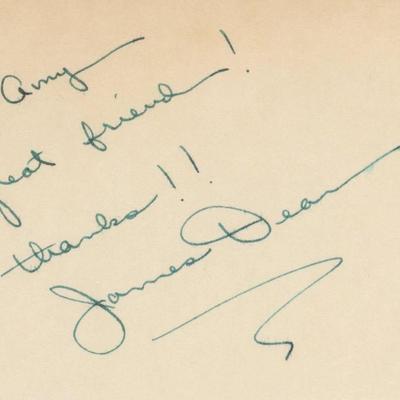 Amy
great friend!
thanks!!
James Dean